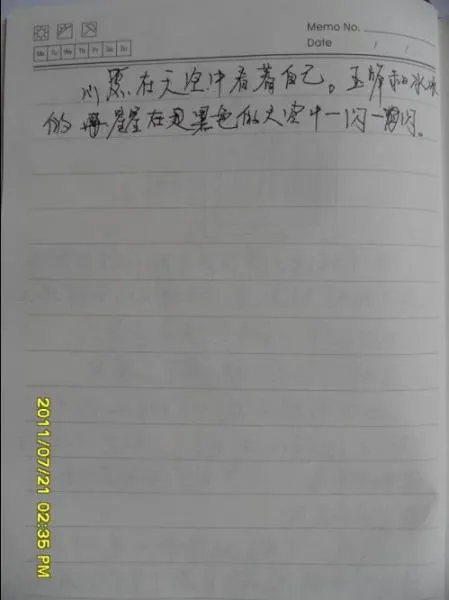 Memo No.
Date / /
Mo Tu We Th Fr Sa Su
川原在天空中看着自己。玉解和冰冰
的星星在黑色的天空中一闪一闪。
2011/07/21 02:35 PM